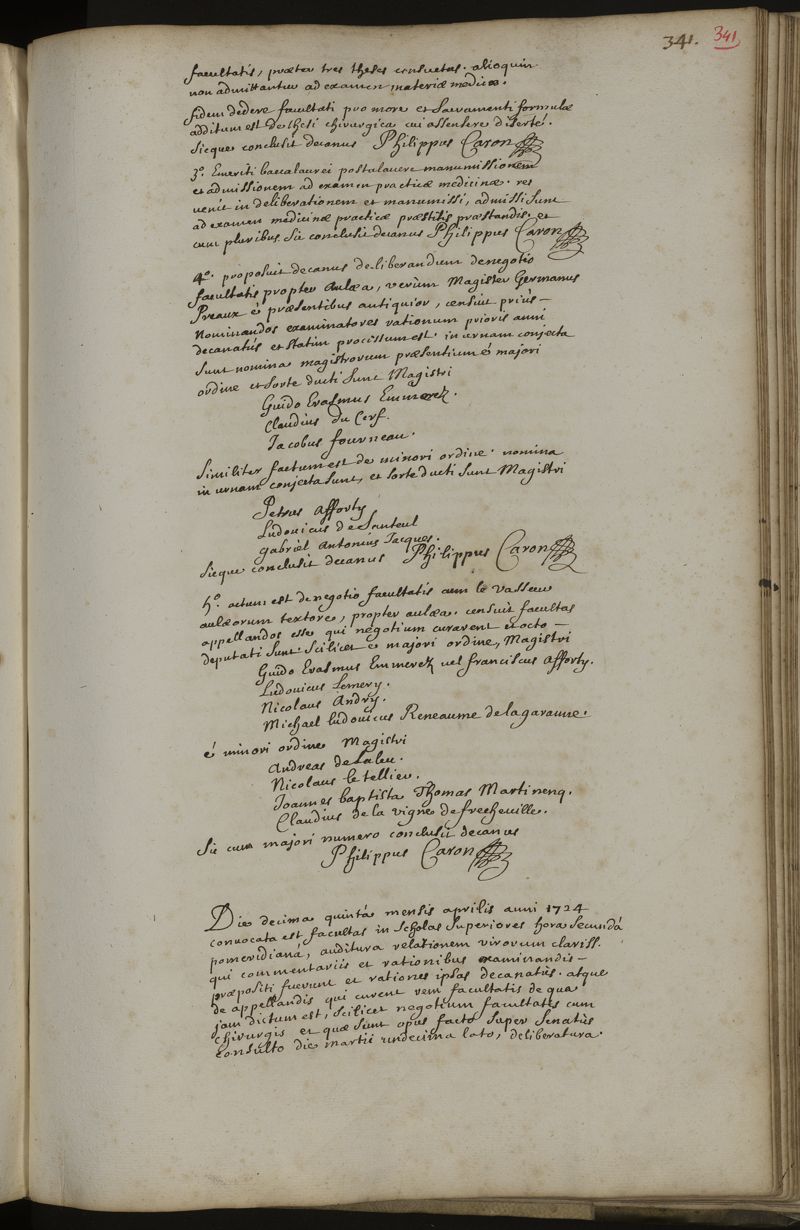 341. 341
facultatis, præter tres theses consuetas. alioquin
non admittantur ad examen materiæ medicæ.
fidem dedere facultati pro more et sacramenti formulæ
additum est de thesi chirurgica cui assentere diserté.
Sicque conclusit decanus Philippus Caron
3º. Emeriti baccalaurei postulavere manumissionem
et admissionem ad examen practicæ medicinæ. res
venit in deliberationem et manumissi, admissi sunt
ad examen medicinæ practicæ præstitis præstandis. et
cum pluribus sic conclusit decanus Philippus Caron
4º. proposuit decanus deliberandum de negotio
facultatis propter aulæa, verùm Magister Germanus
Preaux è præsentibus antiquior, censuit priùs –
Nominandos examinatores rationum prioris anni
decanatûs et statim processum est. in urnam conjecta
sunt nomina magistrorum præsentium è majori
ordine et sorte ducti sunt Magistri
Guido Erasmus Emmerez.
Claudius du Cerf.
Jacobus fourneau.
Similiter factum est de minori ordine. nomina
in urnam conjecta sunt, et sorte ducti sunt Magistri
Petrus afforty
Ludovicus de Santeul
gabriel antonius Jacques.
Sicque conclusit decanus Philippus Caron
5º. actum est de negotio facultatis cum le Vasseur
aulæorum textore, propter aulæa. censuit facultas
appellandos esse qui negotium curarent et octo –
deputati sunt. scilicet è majori ordine, Magistri
Guido Erasmus Emmerez vel franciscus afforty.
Ludovicus Lemery.
Nicolaus Andry.
Michael ludovicus Reneaume de lagaranne.
é minori ordine Magistri
Andreas de Laleu.
Nicolaus le tellier.
Joannes baptista Thomas Martinenq.
Claudius de la vigne de frecheville.
Sic cum majori numero conclusit decanus
Philippus Caron
Die decima quintâ mensis aprilis anni 1724
convocata est facultas in Scholas Superiores hora secundâ
pomeridianâ, auditura relationem virorum clariss.
qui commentariis et rationibus examinandis –
præpositi fuerunt et rationes ipsas decanatûs. atque
de appellandis qui curent rem facultatis de qua
jam dictum est, scilicet negotium facultatis cum
chirurgis et quæ sunt opus facto super Senatûs
consulto die martii undecima lato, deliberatura.